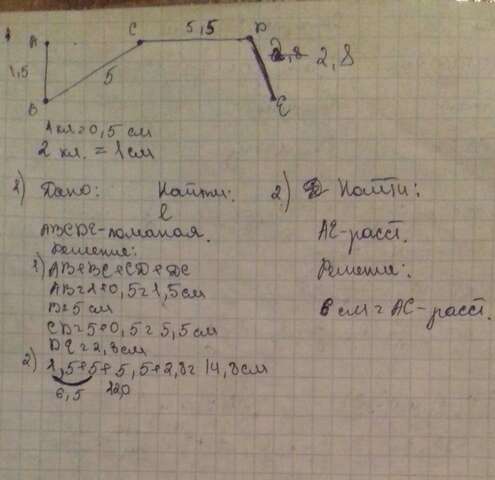 A C 5,5 D
1,5 5 2,8 2,8
B E
1 кл = 0,5 см
2 кл. = 1 см
1) Дано: Найти:
l
ABCDE-ломаная.
Решение:
1) AB+BC+CD+DE
AB=1+0,5=1,5 см
B=5 см
CD=5+0,5=5,5 см
DE=2,8 см
2) 1,5+5+5,5+2,8=14,8 см
6,5 12,0
2) Найти:
AE-расст.
Решение:
6 см = AC-расст.